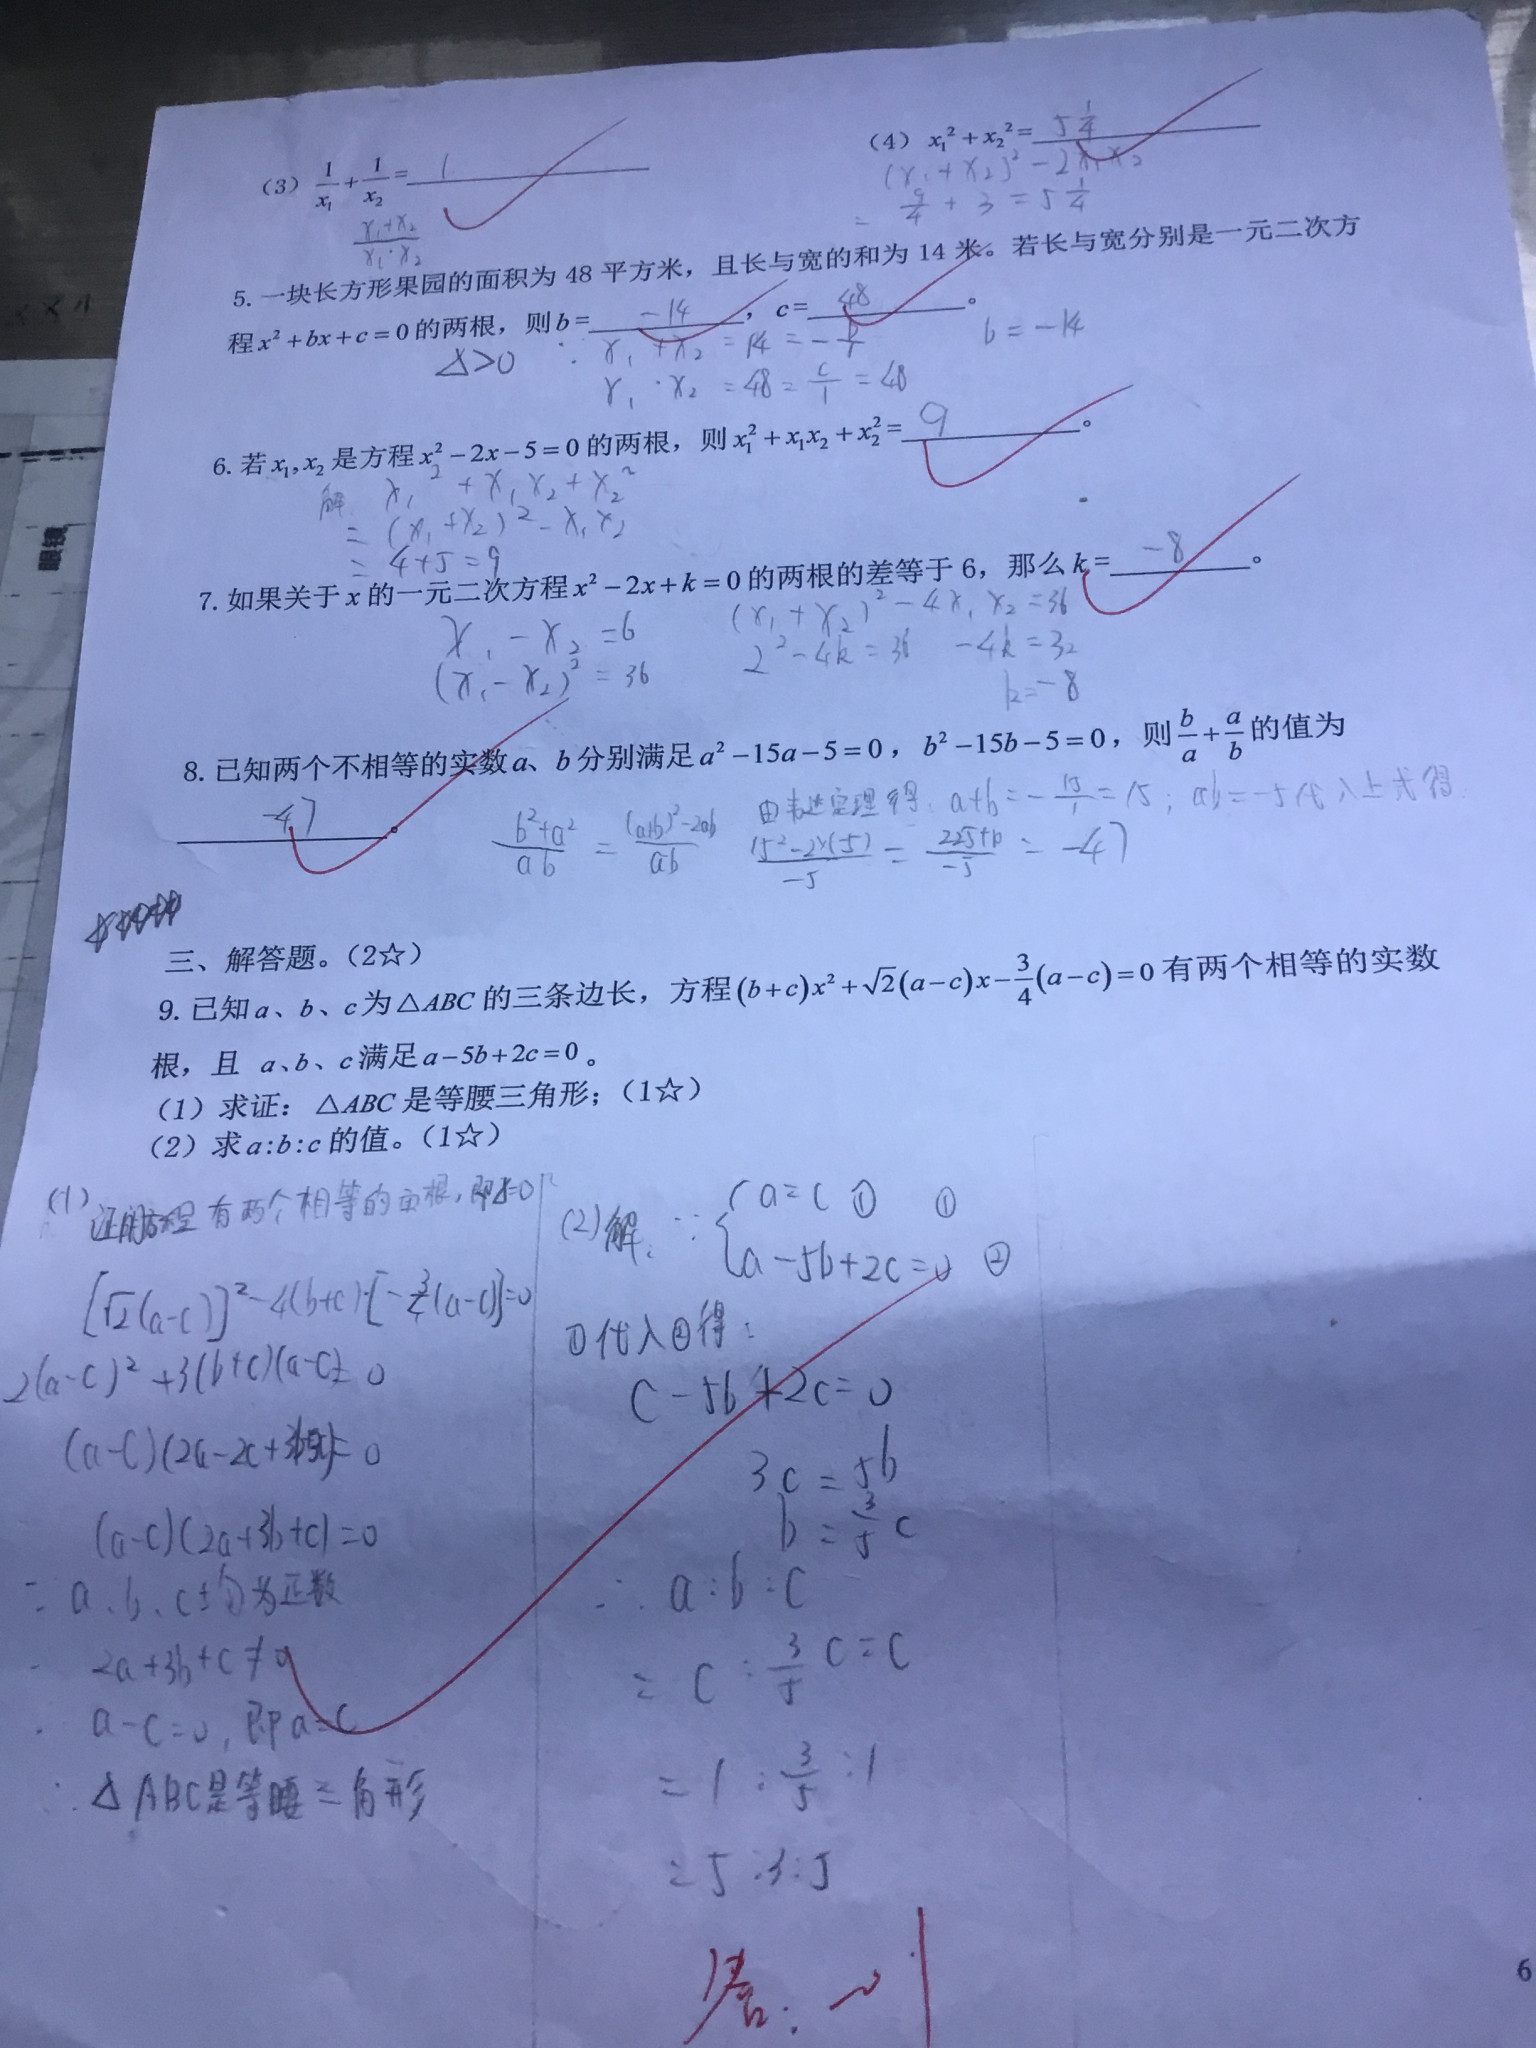 (3) 1/x₁ + 1/x₂ = 1
(x₁+x₂)/(x₁·x₂)
(4) x₁² + x₂² = 5 1/4
(x₁+x₂)² - 2x₁x₂
= 9/4 + 3 = 5 1/4
5. 一块长方形果园的面积为 48 平方米，且长与宽的和为 14 米。若长与宽分别是一元二次方
程 x² + bx + c = 0 的两根，则 b= -14 ，c= 48 。
Δ>0 ∵ x₁+x₂ = 14 = -b/1 b = -14
x₁·x₂ = 48 = c/1 = 48
6. 若 x₁, x₂ 是方程 x² - 2x - 5 = 0 的两根，则 x₁² + x₁x₂ + x₂² = 9 。
解 x₁² + x₁x₂ + x₂²
= (x₁+x₂)² - x₁x₂
= 4+5=9
7. 如果关于 x 的一元二次方程 x² - 2x + k = 0 的两根的差等于 6，那么 k= -8 。
x₁ - x₂ = 6 (x₁+x₂)² - 4x₁x₂ = 36
(x₁-x₂)² = 36 2² - 4k = 36 -4k = 32
k = -8
8. 已知两个不相等的实数 a、b 分别满足 a² -15a -5=0，b² -15b -5=0，则 b/a + a/b 的值为
-47 。
由韦达定理得：a+b = -15/1 = 15；ab = -5代入上式得
(b²+a²)/ab = ((a+b)²-2ab)/ab (15²-2×(-5))/-5 = (225+10)/-5 = -47
三、解答题。（2☆）
9. 已知 a、b、c 为 △ABC 的三条边长，方程 (b+c)x² + √2(a-c)x - 3/4(a-c) = 0 有两个相等的实数
根，且 a、b、c 满足 a-5b+2c=0。
（1）求证：△ABC 是等腰三角形；（1☆）
（2）求 a:b:c 的值。（1☆）
(1) 证明方程有两个相等的实根，即Δ=0
[√2(a-c)]² - 4(b+c)·[-3/4(a-c)]=0
2(a-c)² + 3(b+c)(a-c) = 0
(a-c)(2a-2c+3b+3c)=0
(a-c)(2a+3b+c)=0
∵ a、b、c均为正数
∴ 2a+3b+c≠0
∴ a-c=0, 即a=c
∴ △ABC是等腰三角形
(2) 解：∵ {a=c ① ①
a-5b+2c=0 ②
①代入②得：
c-5b+2c=0
3c=5b
b = 3/5 c
∴ a:b:c
= c : 3/5 c : c
= 1 : 3/5 : 1
= 5:3:5
6